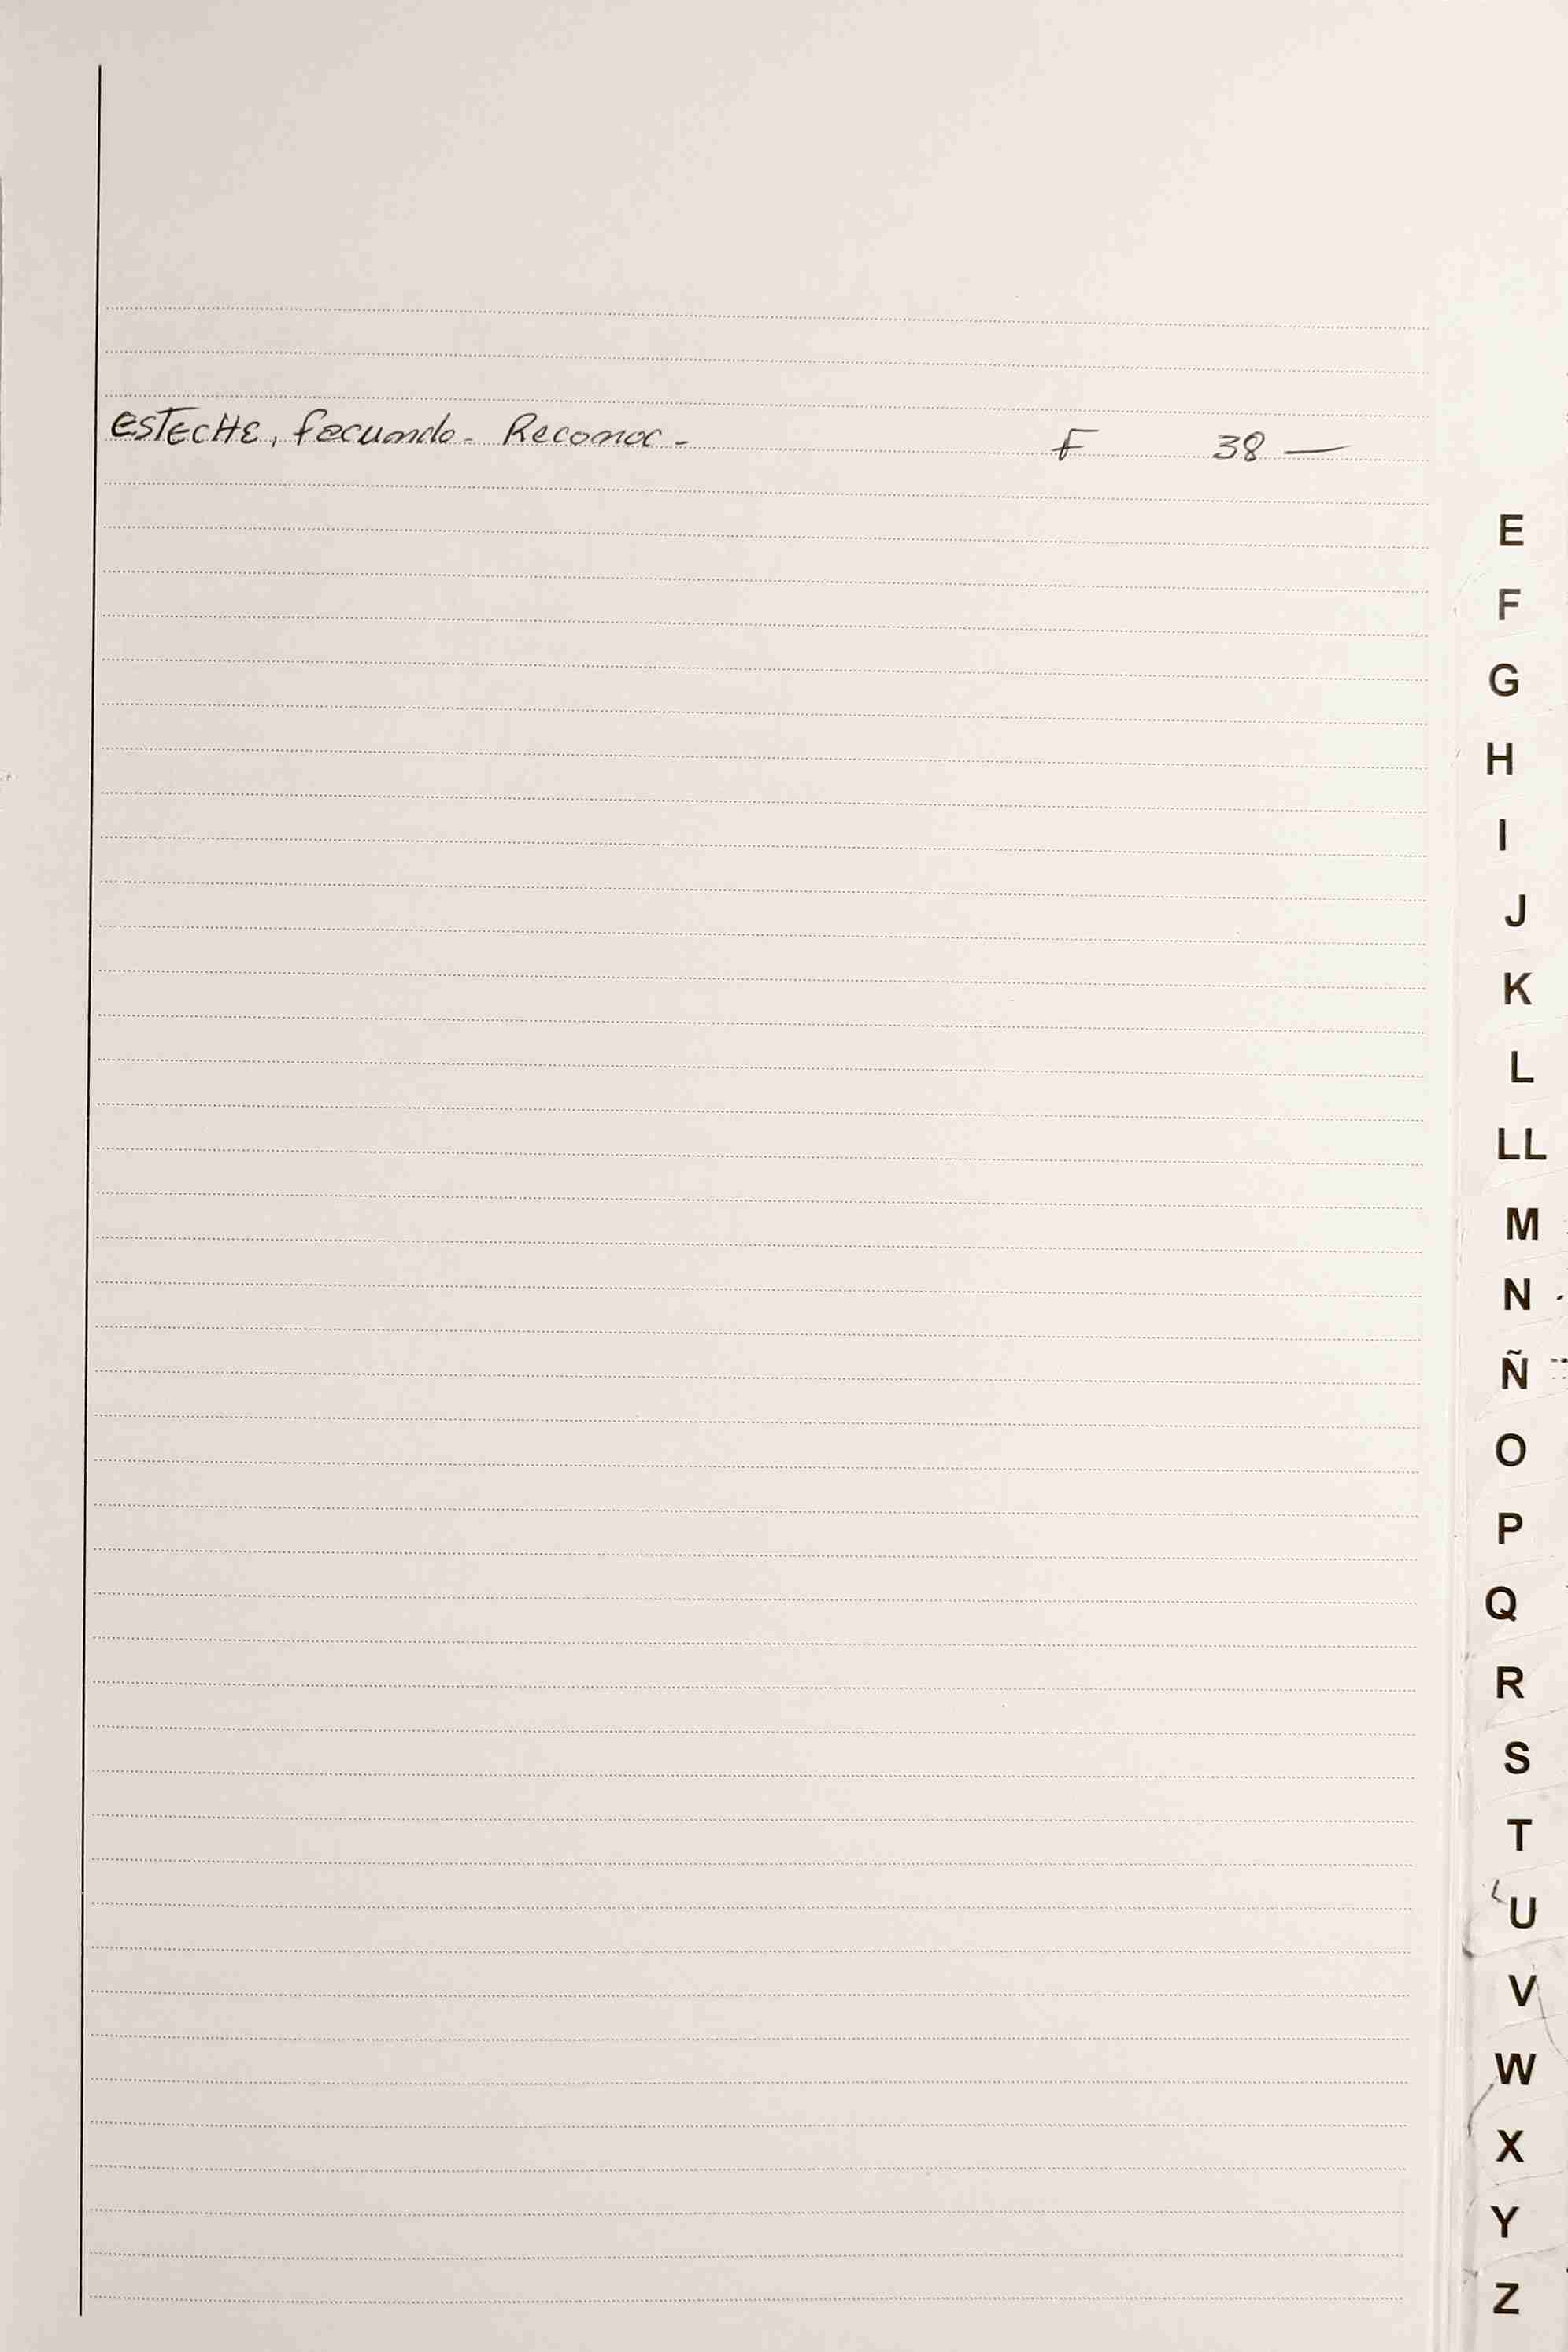 ESTECHE, facundo - Reconoc -    F    38 —
E
F
G
H
I
J
K
L
LL
M
N
Ñ
O
P
Q
R
S
T
U
V
W
X
Y
Z